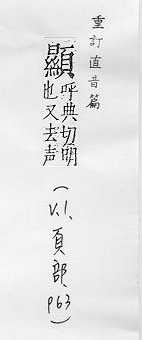 重訂直音篇
顯呼典切明
也又去声
(V.1.頁部
P63)